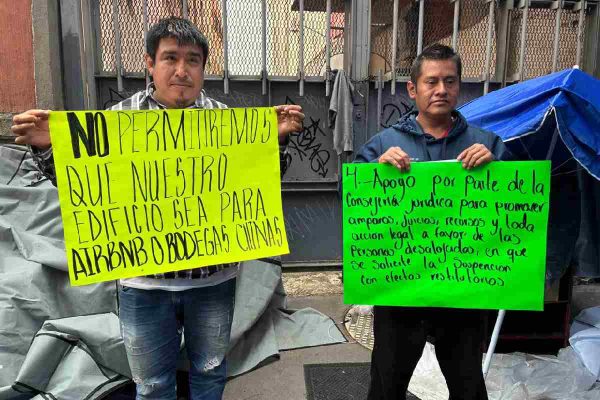 NO PERMITIREMOS
QUE NUESTRO
EDIFICIO SEA PARA
AIRBNB O BODEGAS CHINAS
4.-Apoyo por parte de la
Consejería jurídica para promover
amparos, juicios, recursos y toda
acción legal a favor de las
Personas desalojadas, en que
se solicite la Suspención
con efectos restitutorios